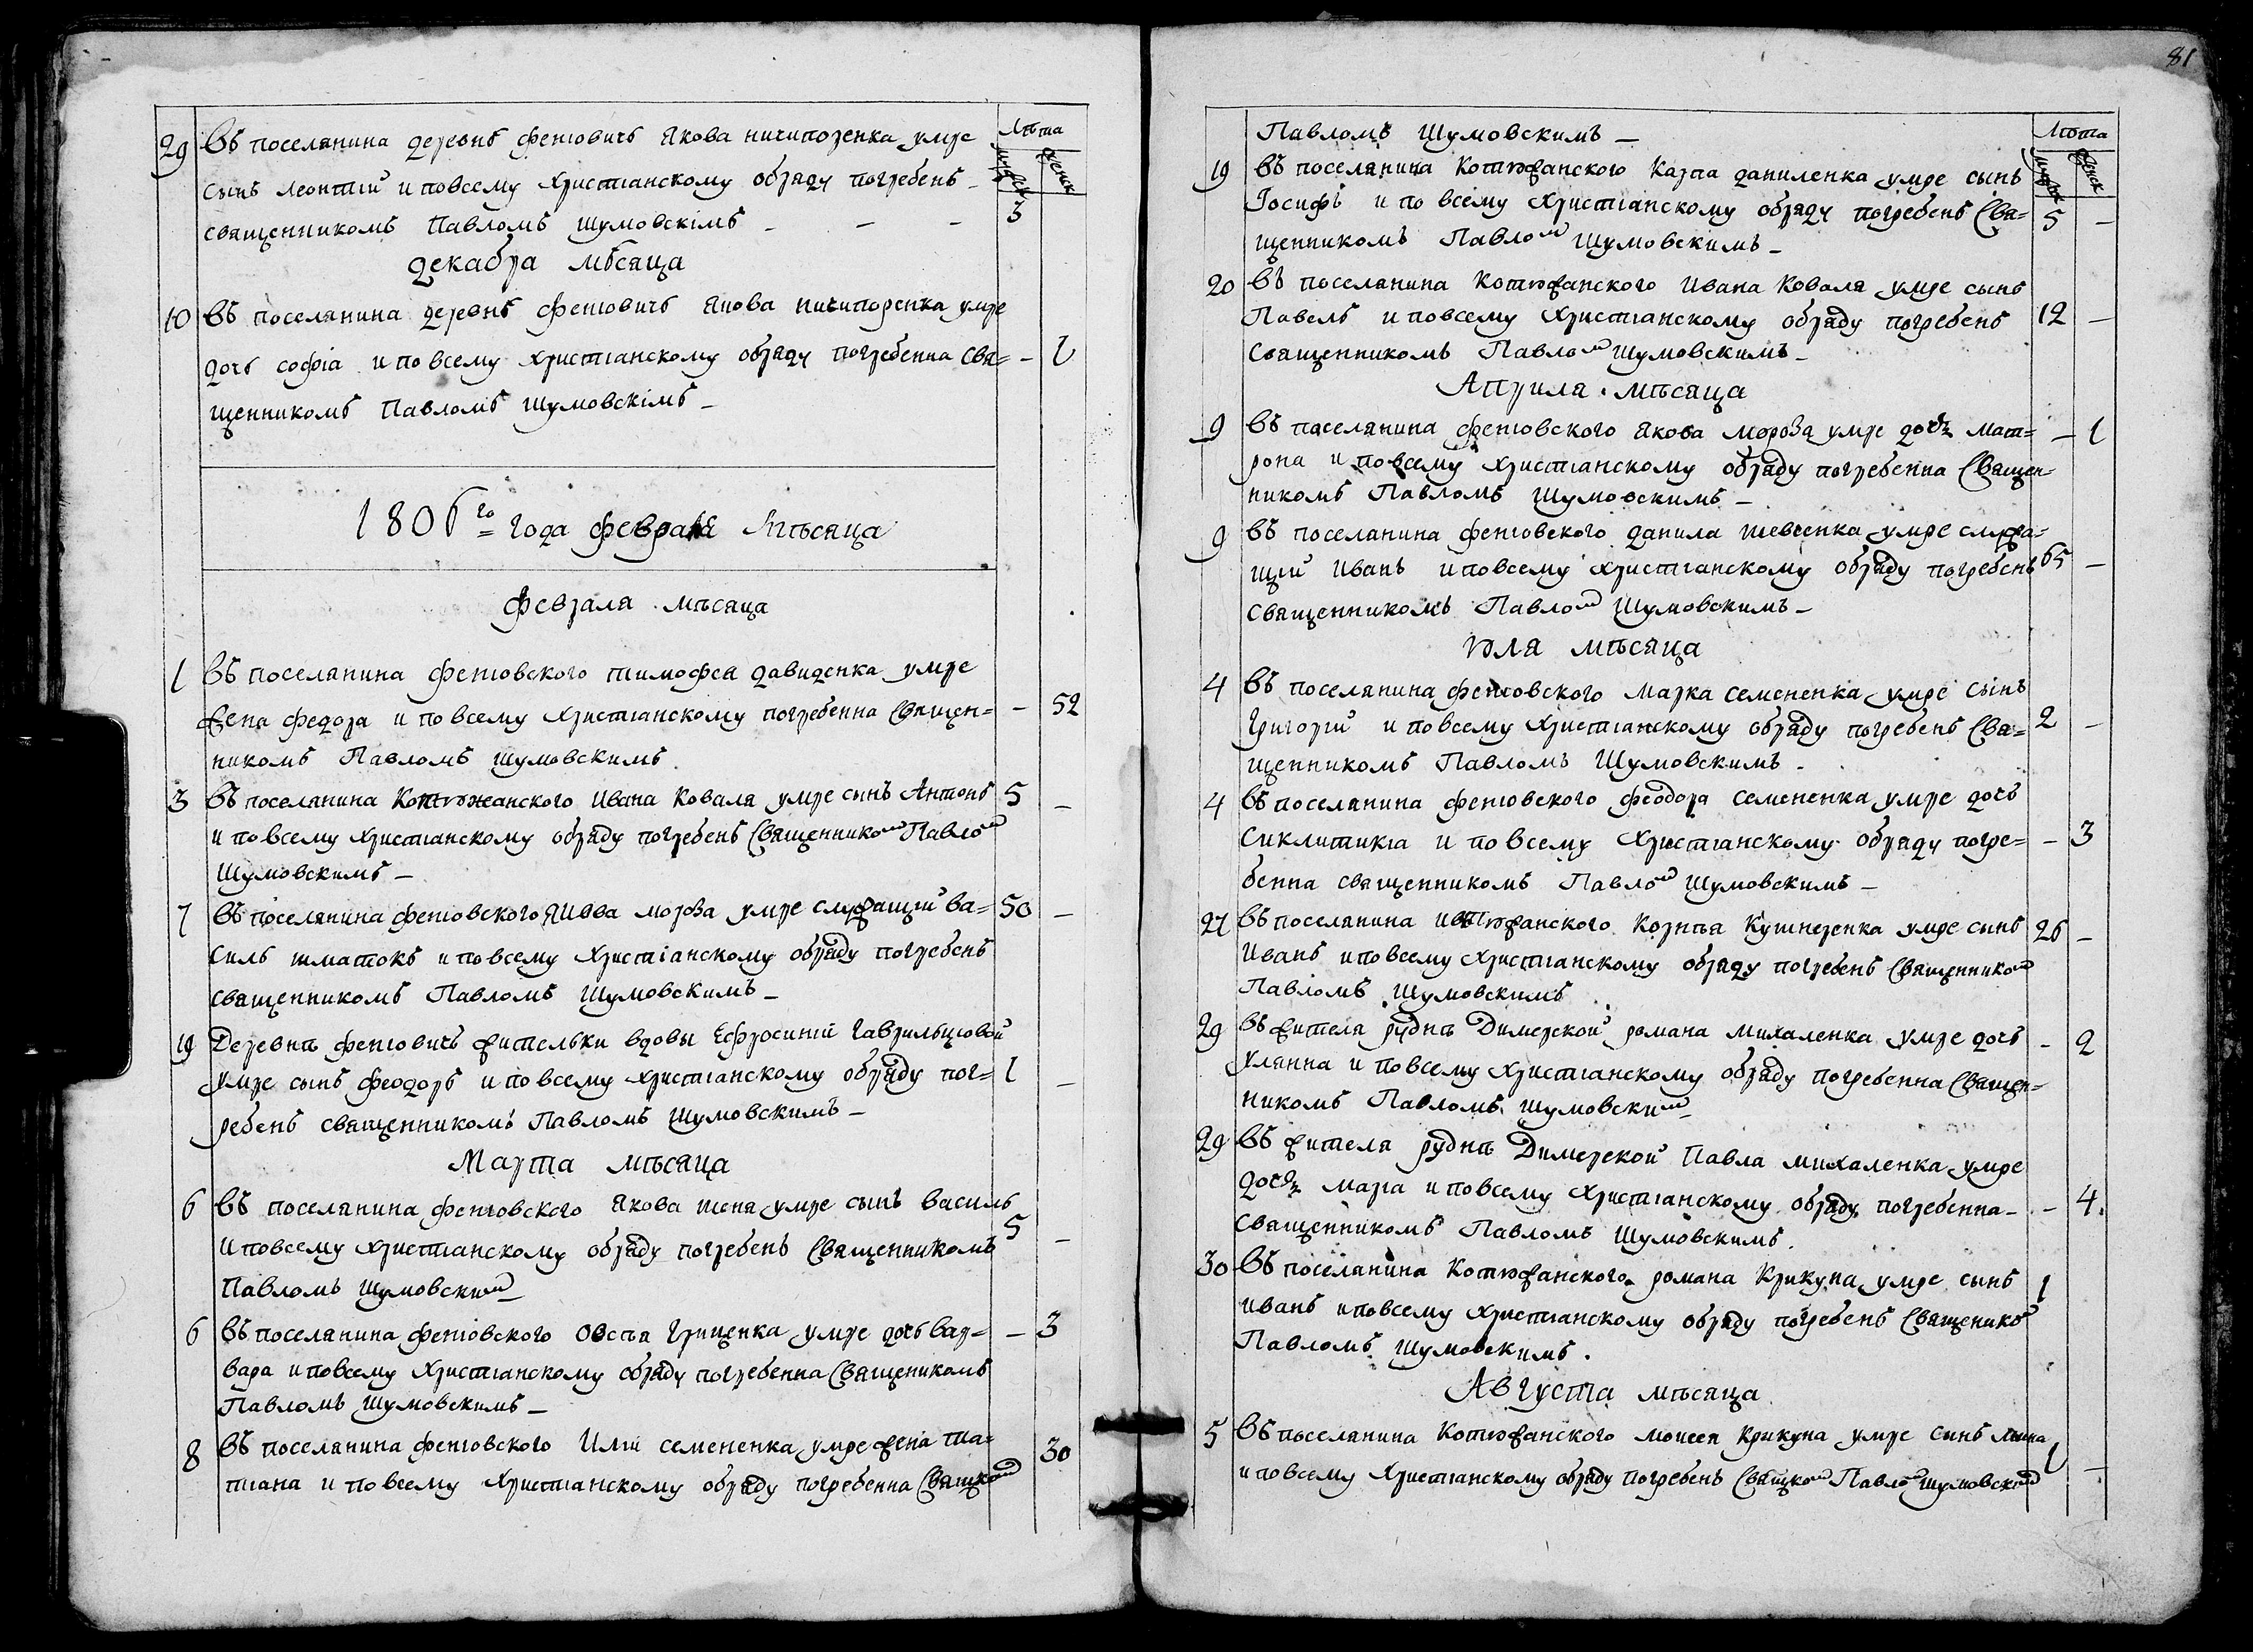 Лѣта
мужск женск
29 Въ поселянина деревнѣ фенювичъ Якова ничипоренка умре
сынъ леонтій и повсему христіанскому обряду погребенъ
священникомъ Павломъ Шумовскімъ - - - 3
декабря мѣсяца
10 Въ поселянина деревнѣ фенювичъ Якова ничипоренка умре
дочь софіа и по всему христіанскому обряду погребенна свя= - 1
щенникомъ Павломъ Шумовскімъ -
1806го года февраля мѣсяца
февраля мѣсяца
1 Въ поселянина фенювского тимофея давиденка умре
жена федора и по всему христіанскому погребенна Священ= - 52
никомъ Павломъ шумовскимъ.
3 Въ поселянина Котюжанского Ивана Коваля умре сынъ Антонъ 5 -
и по всему христіанскому обряду погребенъ Священником Павлом
Шумовскимъ -
7 Въ поселянина фенювского мороза умре служащій ва= 50 -
силь шматокъ и повсему христіанскому обряду погребенъ
священникомъ Павломъ Шумовскимъ -
19 Деревнѣ фенювичъ жительки вдовы Ефросиніи Гаврильцовой
умре сынъ феодоръ и по всему христіанскому обряду пог= 1 -
ребенъ священникомъ Павломъ Шумовскимъ -
Марта мѣсяца
6 Въ поселянина фенювского Якова шепа умре сынъ василь
и повсему христіанскому обряду погребенъ Священникомъ 5 -
Павломъ Шумовским
6 Въ поселянина фенювского овсѣя Гриценка умре дочь вар= - 3
вара и повсему христіанскому обряду погребенна Священикомъ
Павломъ Шумовскимъ -
8 Въ поселянина фенювского Иліи семененка умре жена та= 30
тіана и по всему Христіанскому обряду погребенна Священком
81
Лѣта
мужск женск
Павломъ Шумовскимъ -
19 Въ поселянина Котюжанского Карпа даниленка умре сынъ
Іосифъ и по всему христіанскому обряду погребенъ Свя= 5 -
щенникомъ Павлом Шумовскимъ -
20 Въ поселянина Котюжанского Ивана Коваля умре сынъ
Павелъ и повсему христіанскому обряду погребенъ 12 -
Священникомъ Павлом Шумовскимъ -
Априля мѣсяца
9 Въ поселянина фенювского Якова мороза умре дочь мат= - 1
рона и повсему христіанскому обряду погребенна Священ
никомъ Павломъ Шумовскимъ -
9 Въ поселянина фенювского данила шевченка умре служа=
щій Иванъ и повсему христіанскому обряду погребенъ 65 -
священникомъ Павлом Шумовскимъ -
Юля мѣсяца
4 Въ поселянина фенювского Марка семененка умре сынъ
Григорій и повсему христіанскому обряду погребенъ Свя= 2 -
щенникомъ Павломъ Шумовскимъ.
4 Въ поселянина фенювского феодора семененка умре дочь
Сиклитикіа и по всему Христіанскому обряду погре= - 3
бенна священникомъ Павлом Шумовскимъ -
27 Въ поселянина Корнѣя Кушнеренка умре сынъ 26 -
Иванъ и повсему христіанскому обряду погребенъ Священником
Павломъ Шумовскимъ
29 Въ жителя руднѣ Димерской романа михаленка умре дочь - 2
улянна и повсему христіанскому обряду погребенна Священ=
никомъ Павломъ Шумовским
29 Въ жителя руднѣ Димерской Павла михаленка умре
дочь маріа и повсему христіанскому обряду погребенна - - 4.
Священникомъ Павломъ Шумовскимъ.
30 Въ поселянина Котюжанского романа Крикуна умре сынъ 1
иванъ и повсему христіанскому обряду погребенъ Священико
Павломъ Шумовскимъ.
Августа мѣсяца
5 Въ поселянина Котюжанского моисея Крикуна умре синъ мина
и повсему Христіанскому обряду погребенъ Свящком Павлом Шумовским 1 -